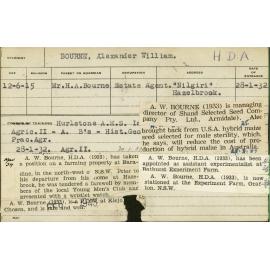 STUDENT
BOURNE, Alexander William.
H D A
DAY
RELIGION
PARENT OR GUARDIAN
OCCUPATION
ADDRESS
DATE OF ENTRANCE
12-6-15
Mr.H.A.Bourne
Estate Agent.
"Nilgiri"
Hazelbrook.
28-1-32
COURSE OF TRAINING
Hurlstone A.H.S.
Agric.II - A. B's - Hist.Geo
Prac.Agr.
28-1-32. Agr.II.
A. W. BOURNE (1933) is managing
director of Shand Selected Seed Com-
pany Pty. Ltd., Armidale). Alec
brought back from U.S.A. hybrid maize
seed selected for male sterility, which
he says, will reduce the cost of pro-
duction of hybrid maize in Australia.
A. W. Bourne, H.D.A. (1933), has taken
a position on a farming property at Bara-
dine, in the north-west of N.S.W. Prior to
his departure from his home at Haze-
brook, he was tendered a farewell by mem-
bers of the local Young Men's Club and
presented with a wristlet watch.
A. W. Bourne, H.D.A. (1933), has been
appointed as assistant experimentalist at
Bathurst Experiment Farm.
A. W. Bourne, H.D.A. (1933), is now
stationed at the Experiment Farm, Graf-
ton, N.S.W.